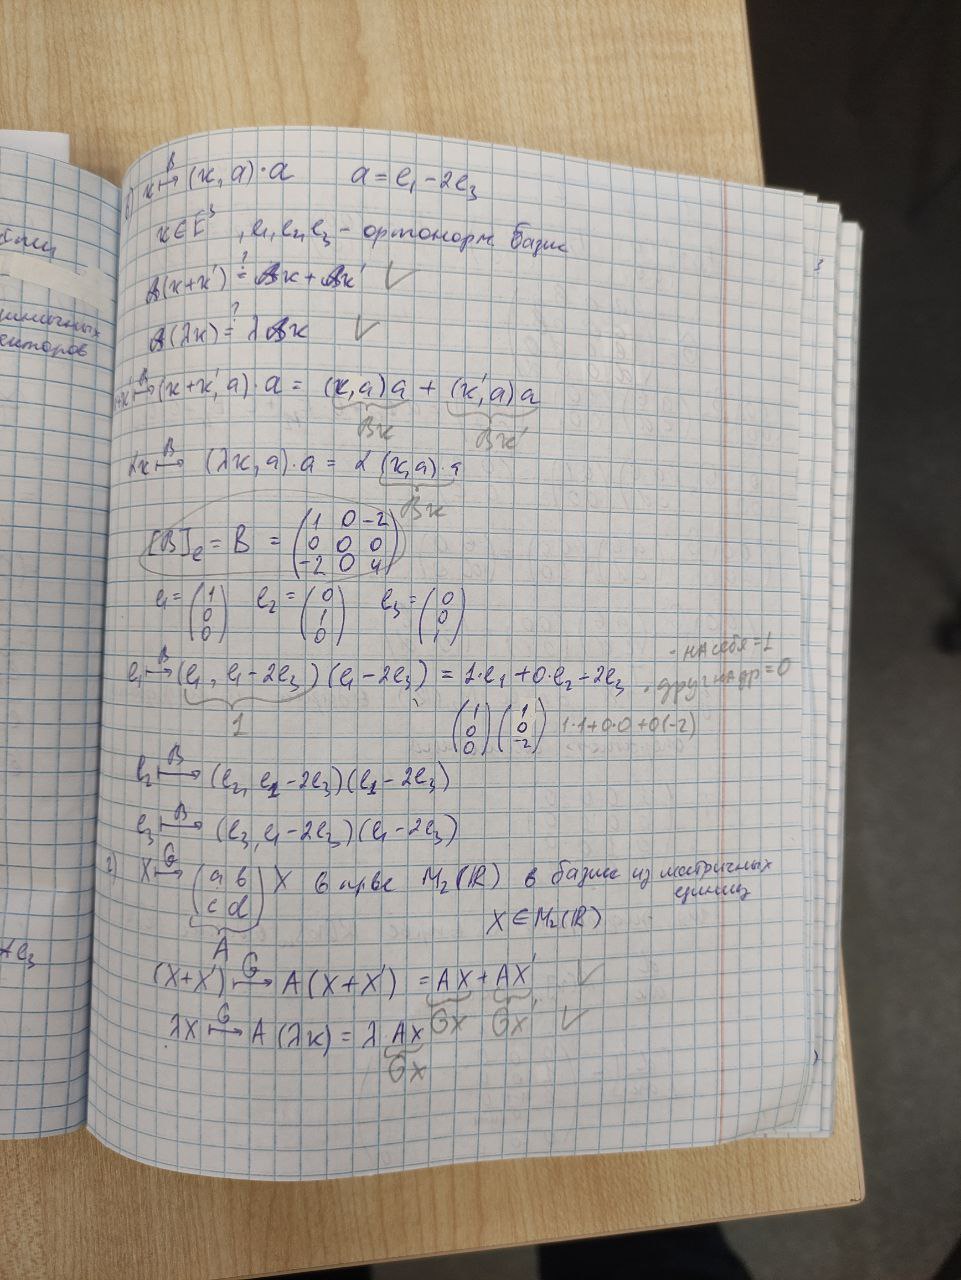 в) x ↦ᴮ (x, a)·a    a = e₁ - 2e₃
x ∈ E³, e₁, e₂, e₃ - ортонорм. базис
A(x+x') ≟ Ax + Ax' ✓
A(λx) ≟ λAx ✓
x+x' ↦ᴮ (x+x', a)·a = (x, a)a + (x', a)a
Bx    Bx'
λx ↦ᴮ (λx, a)·a = λ(x, a)·a
Bx
[B]ₑ = B = (1 0 -2
0 0 0
-2 0 4)
e₁ = (1 0 0)  e₂ = (0 1 0)  e₃ = (0 0 1)
e₁ ↦ᴮ (e₁, e₁ - 2e₃)(e₁ - 2e₃) = 1·e₁ + 0·e₂ - 2e₃
- на себя = 1
· друг на др = 0
1
(1 0 0) (1 0 -2) 1·1+0·0+0(-2)
e₂ ↦ᴮ (e₂, e₁ - 2e₃)(e₁ - 2e₃)
e₃ ↦ᴮ (e₃, e₁ - 2e₃)(e₁ - 2e₃)
г) X ↦ᴳ (a b
c d) X в пр-ве M₂(ℝ) в базисе из матричных
единиц
X ∈ M₂(ℝ)
A
(X+X') ↦ᴳ A(X+X') = AX + AX' ✓
GX  GX'
λX ↦ᴳ A(λX) = λ·AX ✓
GX